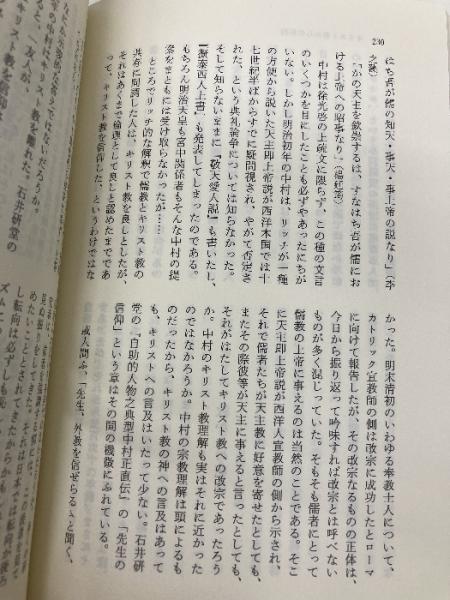 230
はち吾が儒の知天・事天・事上帝の説なり」（李
之藻）
「かの天主を欽崇するは、すなはち吾が儒にお
ける上帝への昭事なり」（楊廷筠）
中村は徐光啓の上疏文に限らず、この種の文言
のいくつかを目にしたことも必ずやあったにちが
いない。しかし明治初年の中村は、リッチが一種
の方便から説いた天主即上帝説が西洋本国では十
七世紀半ばからすでに疑問視され、やがて否定さ
れた、という典礼論争については知らなかった。
そして知らないままに『敬天愛人説』も書いたし、
『擬泰西人上書』も発表してしまったのである。
もちろん明治天皇も宮中関係者もそんな中村の提
案をまともには受け取らなかったが……
ところでリッチ的な解釈で儒教とキリスト教の
共存に同調した人は、キリスト教を良しとしたが、
それはあくまで倫理として良しと認めたまでであ
って、キリスト教を信仰した、というわけではな
かった。明末清初のいわゆる奉教士人について、
カトリック宣教師の側は改宗に成功したとローマ
に向けて報告したが、その改宗なるものの正体は、
今日から振り返って吟味すれば改宗とは呼べない
ものが多く混じっていた。そもそも儒者にとって
儒教の上帝に事えるのは当然のことである。そこ
に天主即上帝説が西洋人宣教師の側から示され、
それで儒者たちが天主教に好意を寄せたとしても、
またその際彼等が天主に事えると言ったとしても、
それがはたしてキリスト教への改宗であったろう
か。中村のキリスト教理解も実はそれに近かった
のではなかろうか。中村の宗教理解は頭によるも
のだったから、キリスト教の神への言及はあって
も、キリストへの言及はいたって少ない。石井研
堂の『自助的人物之典型中村正直伝』の「先生の
信仰」という章はその間の機微にふれている。
或人問ふ、「先生、外教を信ぜらるゝと聞く、
ではないだろうか。
教を離れた。石井研堂の